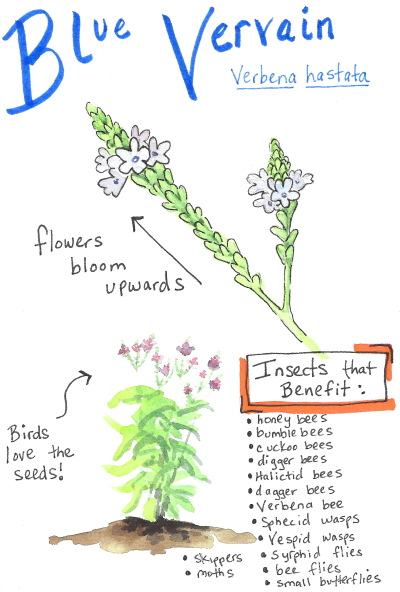 Blue Vervain
Verbena hastata
flowers
bloom
upwards
Birds
love the
seeds!
Insects that
Benefit:
• honey bees
• bumble bees
• cuckoo bees
• digger bees
• Halictid bees
• dagger bees
• Verbena bee
• Sphecid wasps
• Vespid wasps
• Syrphid flies
• bee flies
• small butterflies
• skippers
• moths